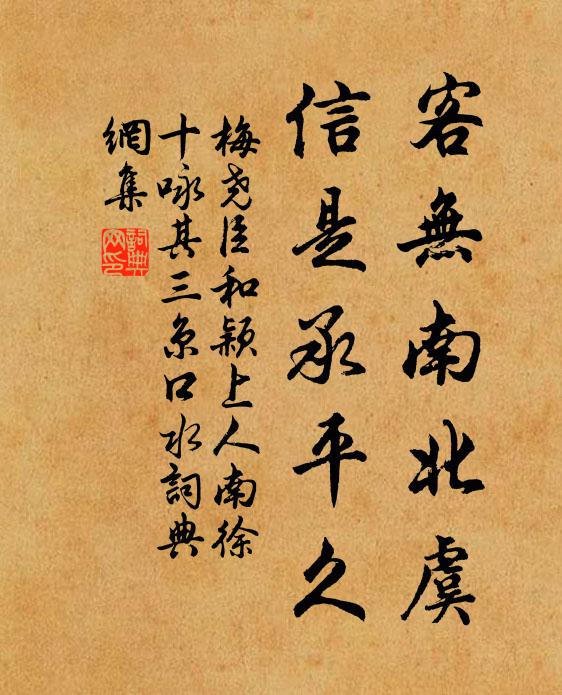 客無南北虞
信是承平久
梅尧臣和颖上人南徐
十咏其三京口水詞典
網集
詞典
网印